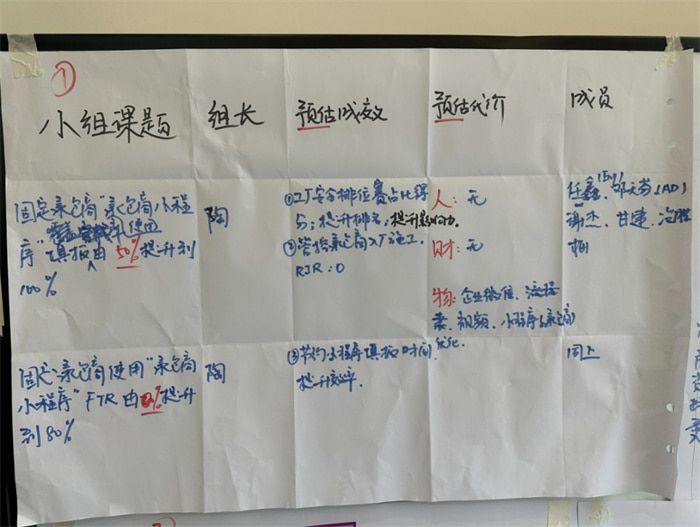 ①
小组课题 组长 预估成效 预估代价 成员
固定承包商"承包商小程
序"填报由50%提升到
100%
陶
①工厂安全排位赛占比得
分；提升排名；提升影响力。
②管控承包商入厂施工，
RIR：0
人：无
财：无
物：企业微信、流程
小程序
优化
(AD)
谢杰、甘建、
固定承包商使用"承包商
小程序"FTR由0%提升
到80%
陶
③节约小程序填报时间，
提升效率。
同上